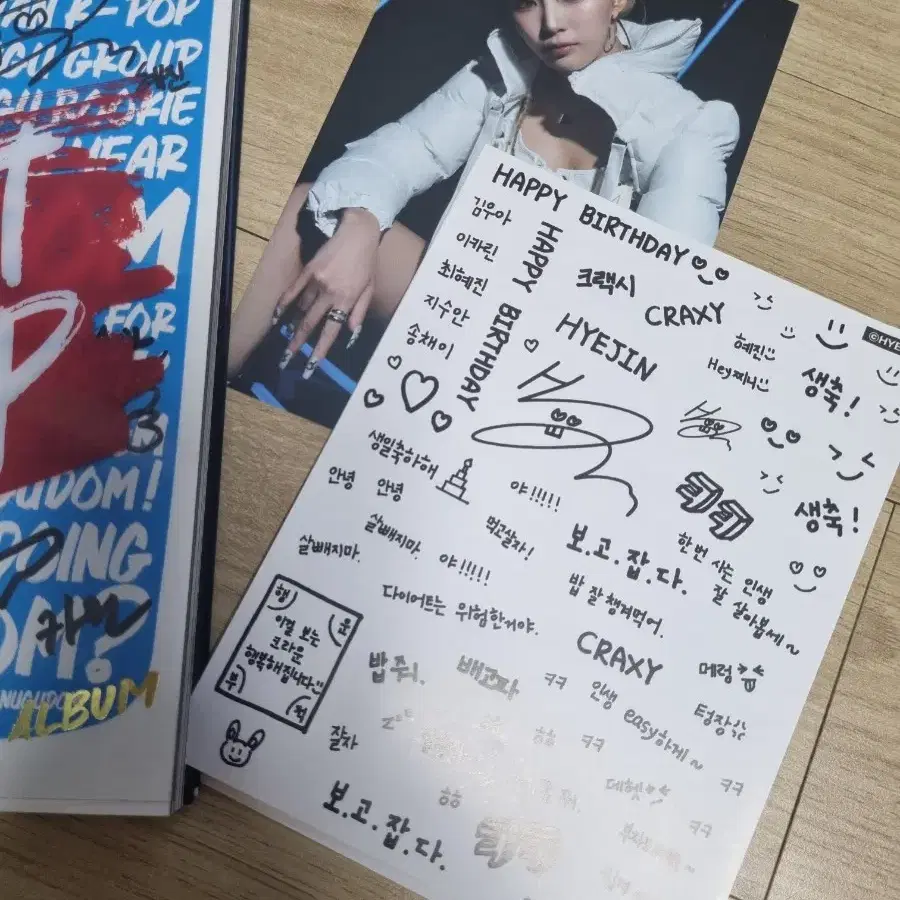 K-POP
GROUP
ROOKIE
YEAR
FOR
혜진
DOM!
DOING
카린
ALBUM
HAPPY BIRTHDAY
김우아
이카린
최혜진
지수안
송채이
HAPPY BIRTHDAY
크랙시
CRAXY
HYEJIN
혜진
Hey찌니
생축!
©HYE
생일축하해
안녕
안녕
야!!!!!
살빼지마.
살빼지마.
야!!!!!
먹고살자!
보.고.잡.다.
생축!
한번 사는 인생
잘 살아봅세~
밥 잘 챙겨먹어.
다이어트는 위험한거야.
행
운
이걸 보는
크라운
행복해집니다
부
적
밥줘.
배고파
ㅋㅋ
CRAXY
메렁
인생
easy하게~
텅장
잘자
ㅎㅎ
ㅋㅋ
데헷
ㅋㅋ
ㅎㅎ
ㅋㅋ
보.고.잡.다.